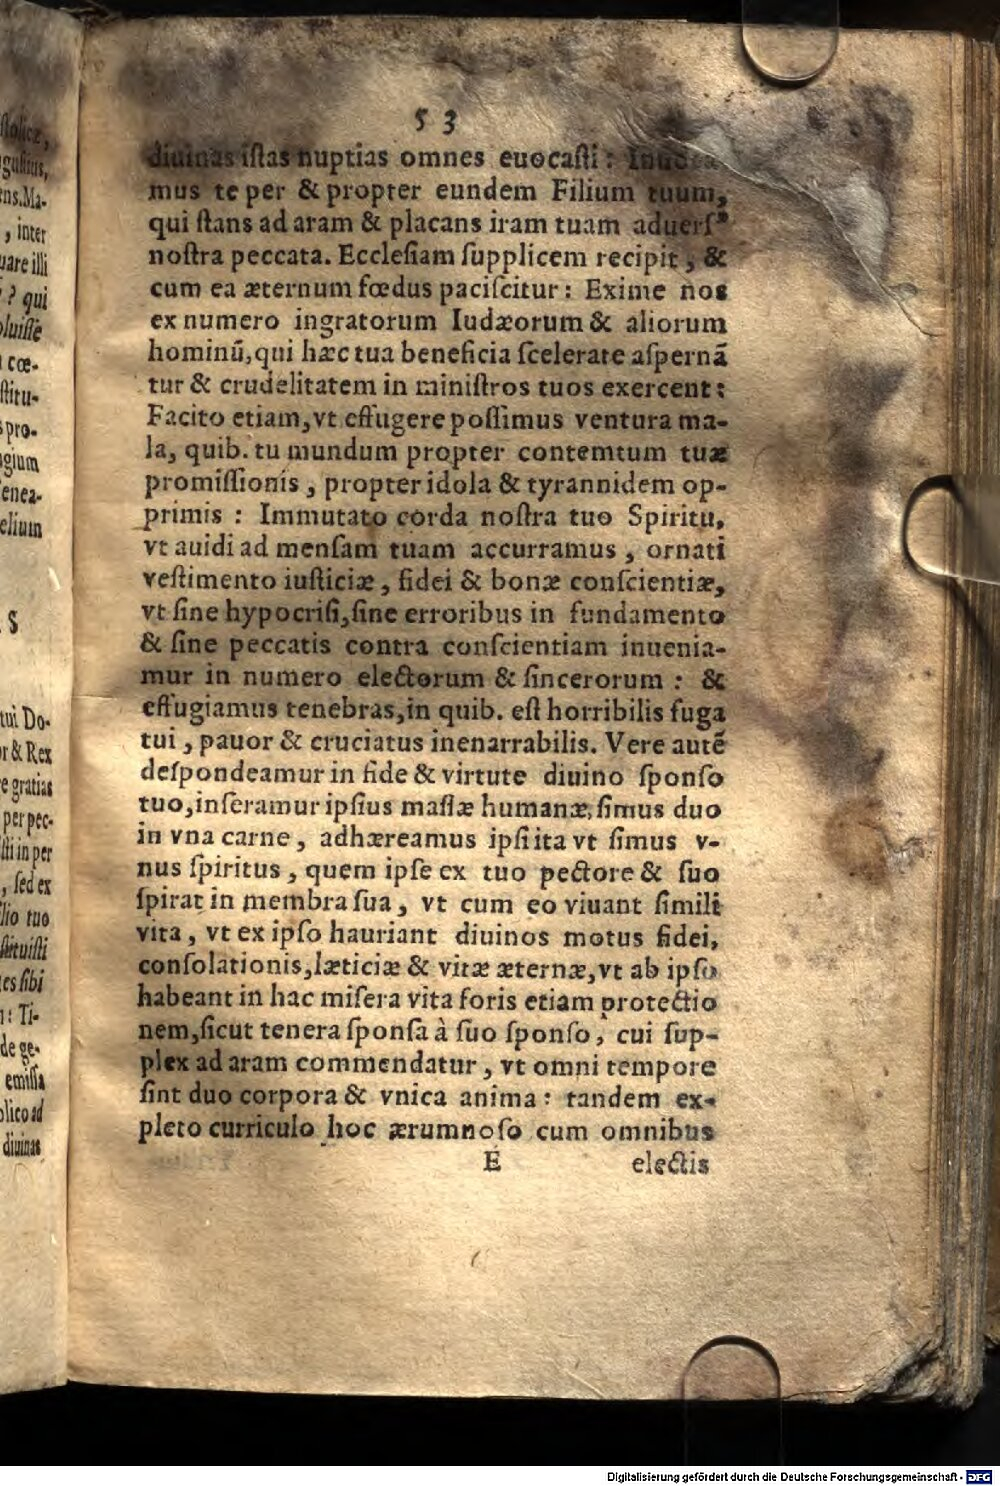 53
diuinas iſtas nuptias omnes euocaſti: Inuoca-
mus te per & propter eundem Filium tuum,
qui ſtans ad aram & placans iram tuam aduerſꝰ
noſtra peccata. Eccleſiam ſupplicem recipit, &
cum ea æternum fœdus paciſcitur: Exime nos
ex numero ingratorum Iudæorum & aliorum
hominū, qui hæc tua beneficia ſcelerate aſpernã
tur & crudelitatem in miniſtros tuos exercent:
Facito etiam, vt effugere poſſimus ventura ma-
la, quib. tu mundum propter contemtum tuæ
promiſſionis, propter idola & tyrannidem op-
primis: Immutato corda noſtra tuo Spiritu,
vt auidi ad menſam tuam accurramus, ornati
veſtimento iuſticiæ, fidei & bonæ conſcientiæ,
vt ſine hypocriſi, ſine erroribus in fundamento
& ſine peccatis contra conſcientiam inuenia-
mur in numero electorum & ſincerorum: &
effugiamus tenebras, in quib. eſt horribilis fuga
tui, pauor & cruciatus inenarrabilis. Vere autē
deſpondeamur in fide & virtute diuino ſponſo
tuo, inſeramur ipſius maſſæ humanæ, ſimus duo
in vna carne, adhæreamus ipſi ita vt ſimus v-
nus ſpiritus, quem ipſe ex tuo pectore & ſuo
ſpirat in membra ſua, vt cum eo viuant ſimili
vita, vt ex ipſo hauriant diuinos motus fidei,
conſolationis, læticiæ & vitæ æternæ, vt ab ipſo
habeant in hac miſera vita foris etiam protectio
nem, ſicut tenera ſponſa à ſuo ſponſo, cui ſup-
plex ad aram commendatur, vt omni tempore
ſint duo corpora & vnica anima: tandem ex-
pleto curriculo hoc ærumnoſo cum omnibus
E electis
Digitalisierung gefördert durch die Deutsche Forschungsgemeinschaft - DFG